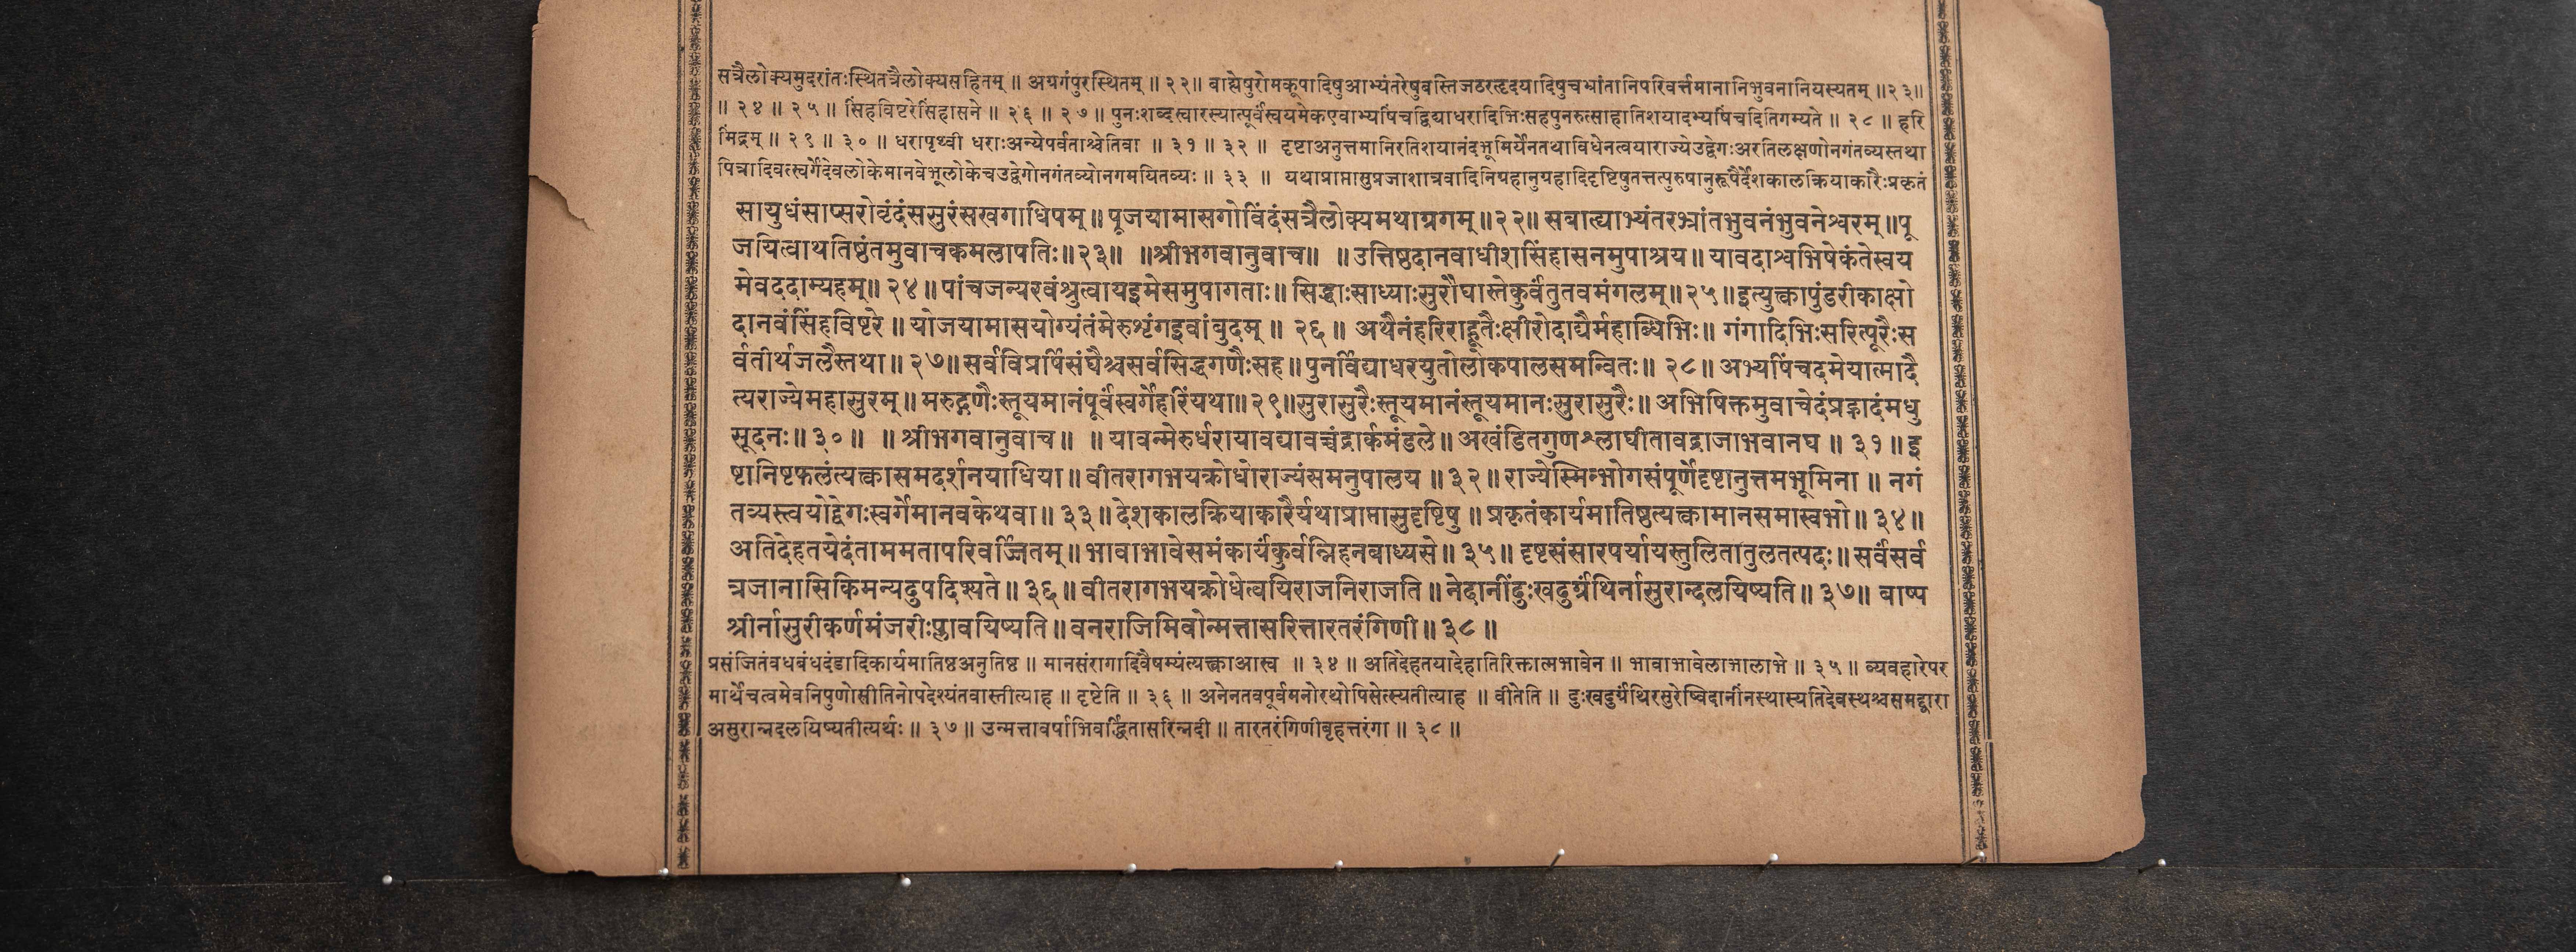 सत्रैलोक्यमुदरांतःस्थितत्रैलोक्यसहितम् ॥ अग्रगंपुरस्थितम् ॥ २२॥ बाह्येषुरोमकूपादिषुआभ्यंतरेषुबस्तिजठरहृदयादिषुचभ्रांतानिपरिवर्त्तमानानिभुवनानियस्यतम् ॥२३॥
॥ २४ ॥ २५ ॥ सिंहविष्टरेसिंहासने ॥ २६ ॥ २७ ॥ पुनःशब्दस्वारस्यात्पूर्वंस्वयमेकएवाभ्यषिंचद्विद्याधरादिभिःसहपुनरुत्साहातिशयादभ्यषिंचदितिगम्यते ॥ २८ ॥ हरि
मिंद्रम् ॥ २९ ॥ ३० ॥ धरापृथ्वी धराःअन्येपर्वताश्चेतिवा ॥ ३१ ॥ ३२ ॥ दृष्टाअनुत्तमानिरतिशयानंदभूमिर्येनतथाविधेनत्वयाराज्येउद्वेगःअरतिलक्षणोनगंतव्यस्तथा
पित्रादिवत्स्वर्गेदेवलोकेमानवेभूलोकेचउद्वेगोनगंतव्योनगमयितव्यः ॥ ३३ ॥ यथाप्राप्तासुप्रजाशात्रवादिनिग्रहानुग्रहादिदृष्टिषुतत्तत्पुरुषानुरूपैर्देशकालक्रियाकारैःप्रकृतं
सायुधंसाप्सरोवृंदंससुरंसखगाधिपम् ॥ पूजयामासगोविंदंसत्रैलोक्यमथाग्रगम् ॥२२॥ सबाह्याभ्यंतरभ्रांतभुवनंभुवनेश्वरम् ॥पू
जयित्वाथतिष्ठंतमुवाचकमलापतिः॥२३॥ ॥श्रीभगवानुवाच॥ ॥उत्तिष्ठदानवाधीशसिंहासनमुपाश्रय॥ यावदाश्वभिषेकंतेस्वय
मेवददाम्यहम्॥ २४॥ पांचजन्यरवंश्रुत्वायइमेसमुपागताः॥ सिद्धाःसाध्याःसुरौघास्तेकुर्वंतुतवमंगलम्॥२५॥इत्युक्त्वापुंडरीकाक्षो
दानवंसिंहविष्टरे ॥ योजयामासयोग्यंतंमेरुशृंगइवांबुदम् ॥ २६॥ अथैनंहरिराहूतैःक्षीरोदाद्यैर्महाब्धिभिः॥ गंगादिभिःसरित्पूरैःस
र्वतीर्थजलैस्तथा॥ २७॥सर्वविप्रर्षिसंघैश्चसर्वसिद्धगणैःसह॥पुनर्विद्याधरयुतोलोकपालसमन्वितः॥ २८॥ अभ्यषिंचदमेयात्मादै
त्यराज्येमहासुरम्॥ मरुद्गणैःस्तूयमानंपूर्वंस्वर्गेहरिंयथा॥२९॥सुरासुरैःस्तूयमानंस्तूयमानःसुरासुरैः॥ अभिषिक्तमुवाचेदंप्रह्लादंमधु
सूदनः॥ ३०॥ ॥ श्रीभगवानुवाच॥ ॥ यावन्मेरुर्धरायावद्यावच्चंद्रार्कमंडले॥ अखंडितगुणश्लाघीतावद्राजाभवानघ ॥ ३१॥ इ
ष्टानिष्टफलंत्यक्त्वासमदर्शनयाधिया॥ वीतरागभयक्रोधोराज्यंसमनुपालय ॥३२॥ राज्येस्मिन्भोगसंपूर्णेदृष्टानुत्तमभूमिना ॥ नगं
तव्यस्त्वयोद्वेगःस्वर्गेमानवकेथवा॥ ३३॥ देशकालक्रियाकारैर्यथाप्राप्तासुदृष्टिषु ॥ प्रकृतंकार्यमातिष्ठत्यक्त्वामानसमास्वभो॥ ३४॥
अतिदेहतयेदंताममतापरिवर्ज्जितम्॥ भावाभावेसमंकार्यंकुर्वन्निहनबाध्यसे॥ ३५॥ दृष्टसंसारपर्यायस्तुलितातुलतत्पदः॥ सर्वंसर्व
त्रजानासिकिमन्यदुपदिश्यते॥ ३६॥ वीतरागभयक्रोधेत्वयिराजनिराजति ॥ नेदानींदुःखदुर्ग्रंथिर्नासुरान्दलयिष्यति॥ ३७॥ बाष्प
श्रीर्नासुरीकर्णमंजरीःप्लावयिष्यति॥ वनराजिमिवोन्मत्तासरित्तारतरंगिणी॥ ३८॥
प्रसंजितंवधबंधदंडादिकार्यमातिष्ठअनुतिष्ठ ॥ मानसंरागादिवैषम्यंत्यक्त्वाआस्व ॥ ३४ ॥ अतिदेहतयादेहातिरिक्तात्मभावेन ॥ भावाभावेलाभालाभे ॥ ३५ ॥ व्यवहारेपर
मार्थेचत्वमेवनिपुणोसीतिनोपदेश्यंतवास्तीत्याह ॥ दृष्टेति ॥ ३६ ॥ अनेनतवपूर्वमनोरथोपिसेत्स्यतीत्याह ॥ वीतेति ॥ दुःखदुर्ग्रंथिरसुरेष्विदानींनस्थास्यतिदेवस्थश्चसमद्द्वारा
असुरान्नदलयिष्यतीत्यर्थः ॥ ३७ ॥ उन्मत्तावर्षाभिवर्द्धितासरिन्नदी ॥ तारतरंगिणीबृहत्तरंगा ॥ ३८ ॥